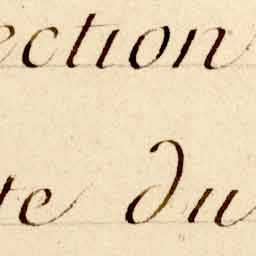 ection
te du